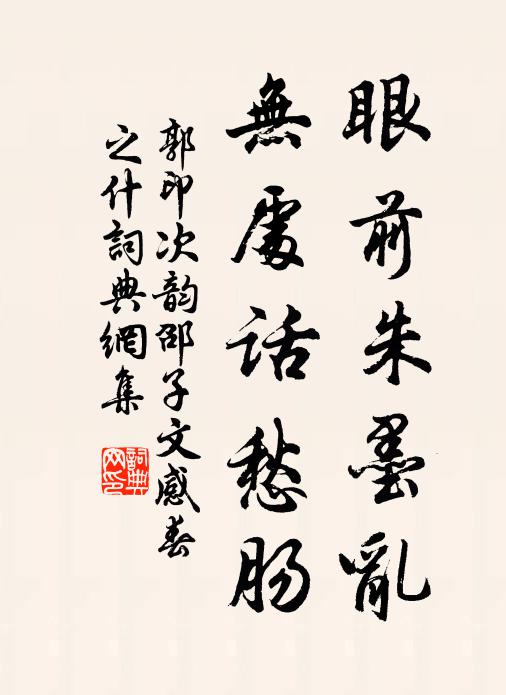 眼前朱墨亂
無處話愁腸
郭印次韵邵子文感春
之什詞典網集
詞典
网印